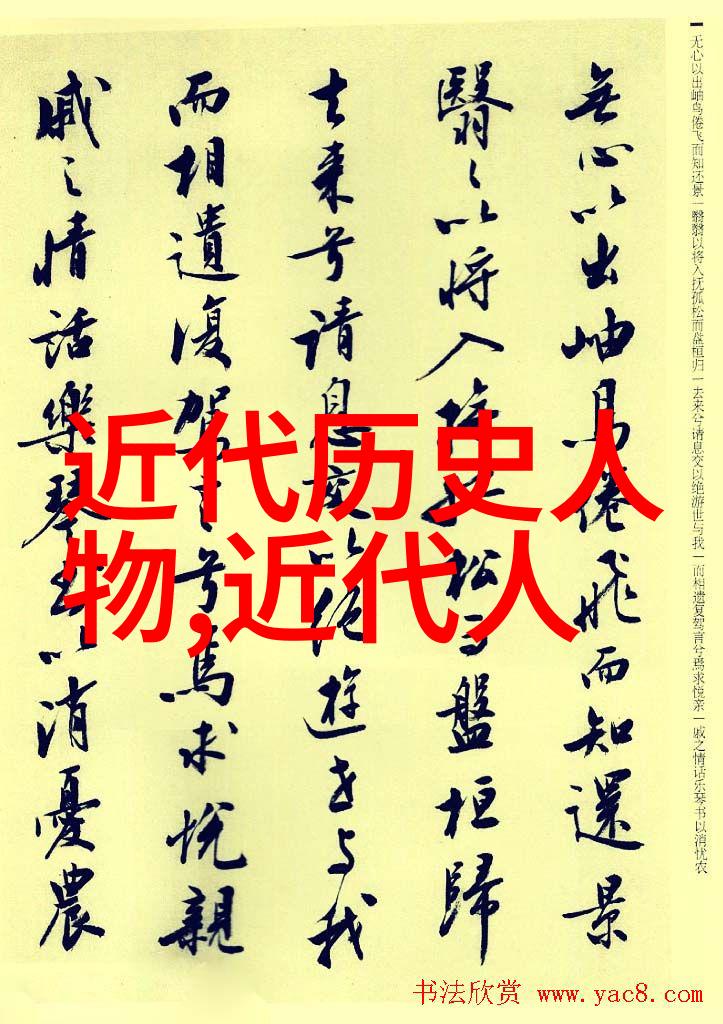 无心以出岫鸟倦飞而知还景一翳翳以将入抚孤松而盘桓归一去来兮请息交以绝游世与我一而相遗复驾言兮焉求悦亲一戚之情话乐琴书以消忧农
無心以出岫鳥倦飛而知還景
翳々以将入撫孤松而盤桓歸
去来兮请息交以絶遊世与我
而相遺復駕言兮焉求悦親
戚之情話樂琴書以消憂農
近代历史人
物,近代人
书法欣赏 www.yac8.com